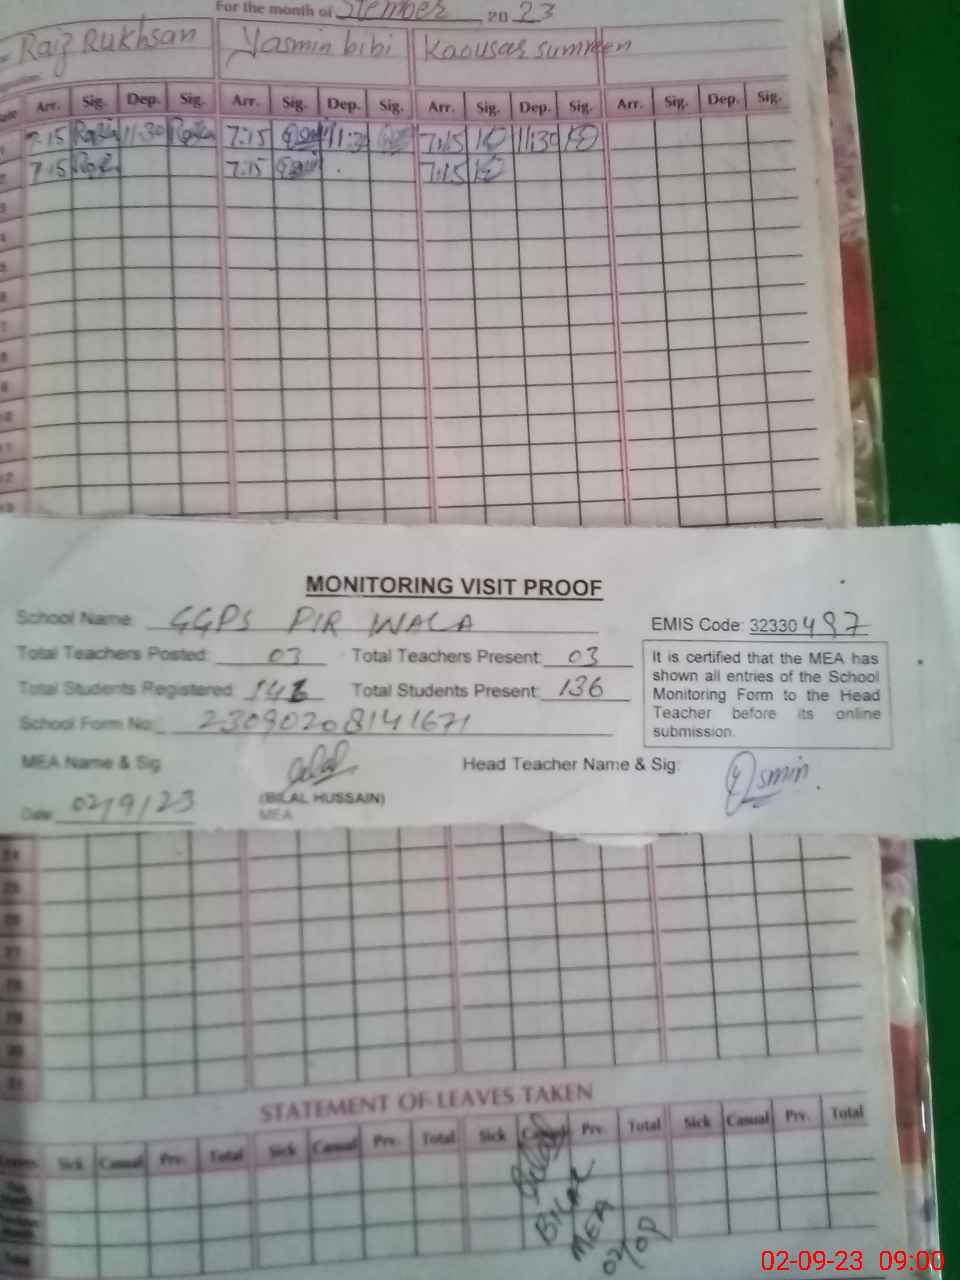 For the month of 20 23
Raiz Rukhsan Yasmin bibi Kaousar sumreen
Arr. Sig. Dep. Sig. Arr. Sig. Dep. Sig. Arr. Sig. Dep. Sig. Arr. Sig. Dep. Sig.
1 7:15 11:30 7:15 11:30 7:15 11:30
2 7:15 7:15 7:15
3
4
5
6
7
8
9
10
11
12
MONITORING VISIT PROOF
School Name: GGPS PIR WALA EMIS Code: 32330497
Total Teachers Posted: 03 Total Teachers Present: 03
Total Students Registered: Total Students Present: 136
School Form No: 23090208141671
It is certified that the MEA has
shown all entries of the School
Monitoring Form to the Head
Teacher before its online
submission.
MEA Name & Sig Head Teacher Name & Sig:
(BILAL HUSSAIN)
MEA
Date: 02/9/23
24
25
26
27
28
29
30
31
STATEMENT OF LEAVES TAKEN
Leaves Sick Casual Prv. Total Sick Casual Prv. Total Sick Casual Prv. Total Sick Casual Prv. Total
Total
BILAL
MEA
02-09-23 09:00